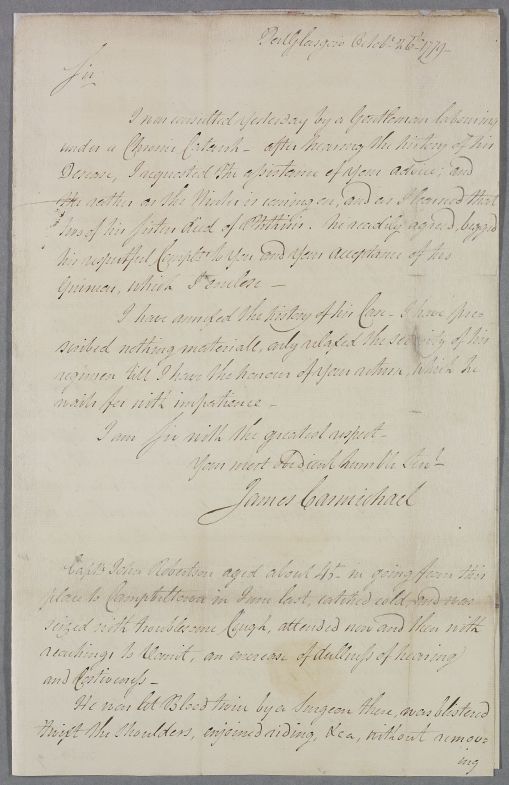 Port Glasgow Octobr. 26t. 1779
Sir
I was consulted yesterday by a Gentleman labouring
under a Chronic Catarrh - after hearing the history of his
Disease, I requested the assistance of your advice; and
the rather as the Winter is coming on, and as I learned that
two of his sisters died of Phthisis. He readily agreed, begged
his respectful Complts. to you and your acceptance of his
Guinea, which I enclose -
I have annexed the history of his Case - I have pre-
scribed nothing materiall, only relaxed the severity of his
regimen till I have the honour of your return, which he
waits for with impatience -
I am Sir with the greatest respect -
Your most Obedient humble Servt.
James Carmichael
Captn. John Robertson aged about 45 - in going from this
place to Campbeltown in June last, catched cold and was
seized with troublesome Cough, attended now and then with
reachings to Vomit, an increase of dullness of hearing
and Costiveness -
He was let Blood twice by a Surgeon there, was blistered
twixt the shoulders, enjoined riding, &ca, without remov-
ing